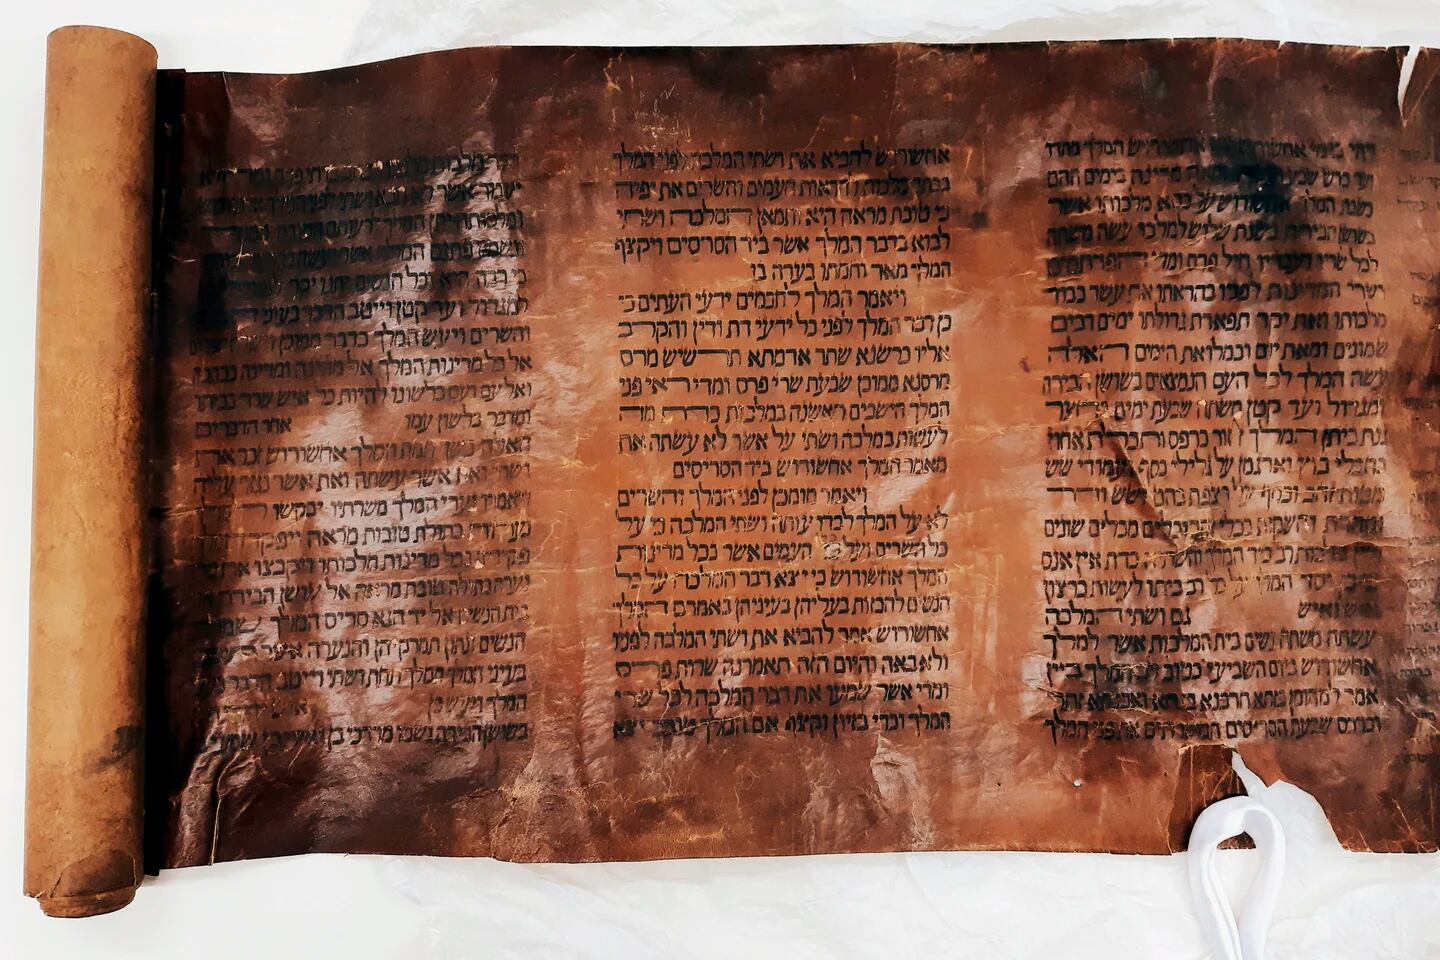 ויהי בימי אחשורוש המלך מהדו
ועד כוש מדינה בימים ההם
כשבת המלך אחשורוש על כסא מלכותו אשר
בשושן הבירה בשנת שלוש למלכו עשה משתה
לכל שריו ועבדיו חיל פרס ומדי הפרתמים
ושרי המדינות לפניו בהראתו את עשר כבוד
מלכותו ואת יקר תפארת גדולתו ימים רבים
שמונים ומאת יום ובמלואת הימים האלה
עשה המלך לכל העם הנמצאים בשושן הבירה
למגדול ועד קטן משתה שבעת ימים בחצר
גנת ביתן המלך חור כרפס ותכלת אחוז
בחבלי בוץ וארגמן על גלילי כסף ועמודי שש
מטות זהב וכסף על רצפת בהט ושש ודר
והשקות בכלי מכלים שונים
רב כיד המלך כדת אין אנס
יסד המלך על כל רב ביתו לעשות כרצון
איש ואיש גם ושתי המלכה
עשתה משתה נשים בית המלכות אשר למלך
אחשורוש ביום השביעי כטוב לב המלך ביין
אמר למהומן בזתא חרבנא בגתא ואבגתא זתר
וכרכס שבעת הסריסים המשרתים את פני המלך
אחשורוש להביא את ושתי המלכה לפני המלך
בכתר מלכות להראות העמים והשרים את יפיה
כי טובת מראה היא ותמאן המלכה ושתי
לבוא בדבר המלך אשר ביד הסרסים ויקצף
המלך מאד וחמתו בערה בו
ויאמר המלך לחכמים ידעי העתים כי
כן דבר המלך לפני כל ידעי דת ודין והקרב
אליו כרשנא שתר אדמתא תרשיש מרס
מרסנא ממוכן שבעת שרי פרס ומדי ראי פני
המלך הישבים ראשנה במלכות כדת מה
לעשות במלכה ושתי על אשר לא עשתה את
מאמר המלך אחשורוש ביד הסריסים
ויאמר מומכן לפני המלך והשרים
לא על המלך לבדו עותה ושתי המלכה כי על
כל השרים ועל כל העמים אשר בכל מדינות
המלך אחשורוש כי יצא דבר המלכה על כל
הנשים להבזות בעליהן בעיניהן באמרם המלך
אחשורוש אמר להביא את ושתי המלכה לפניו
ולא באה והיום הזה תאמרנה שרות פרס
ומדי אשר שמעו את דבר המלכה לכל שרי
המלך וכדי בזיון וקצף אם המלך טוב יצא
דבר מלכות מלפניו ולא
יעבור אשר לא תבוא ושתי לפני המלך
ומלכותה יתן המלך לרעותה
ונשמע פתגם המלך אשר יעשה
כי רבה היא וכל הנשים יתנו יקר
למגדול ועד קטן וייטב הדבר בעיני
והשרים ויעש המלך כדבר ממוכן
אל כל מדינות המלך אל מדינה ומדינה ככתבה
ואל עם ועם כלשונו להיות כל איש שרר בביתו
ומדבר כלשון עמו אחר הדברים
האלה כשך חמת המלך אחשורוש זכר את
ושתי ואת אשר עשתה ואת אשר נגזר עליה
ויאמרו נערי המלך משרתיו יבקשו
בתולות טובות מראה ויפקד
פקידים בכל מדינות מלכותו ויקבצו את כל
נערה בתולה טובת מראה אל שושן הבירה
בית הנשים אל יד הגא סריס המלך שמר
הנשים ונתון תמרקיהן והנערה אשר
בעיני המלך תמלך תחת ושתי וייטב הדבר
המלך ויעש כן
בשושן הבירה ושמו מרדכי בן יאיר בן שמעי